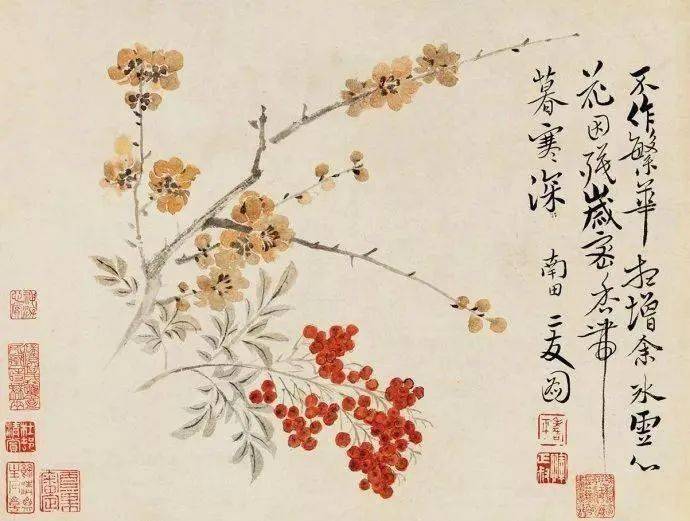 不作繁華想增余冰雪心
花因殘歲密香帶
暮寒深
南田 二友圖